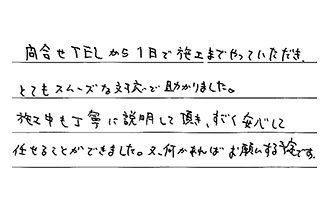 問合せTELから1日で施工までやっていただき、
とてもスムーズな対応で助かりました。
施工中も丁寧に説明して頂き、すごく安心して
任せることができました。又、何かあればお願いする予定です。